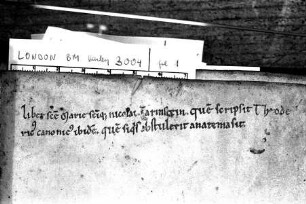 LONDON BM Harley 3004 fol 1
Liber scē Marie scīq; nicolai. in. quē scripsit Theode
ric' canonic' ibidē. quē siq's abstulerit anatema sit.